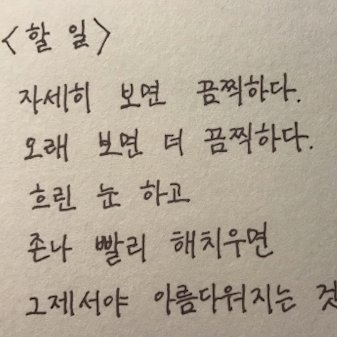 <할 일>
자세히 보면 끔찍하다.
오래 보면 더 끔찍하다.
흐린 눈 하고
존나 빨리 해치우면
그제서야 아름다워지는 것